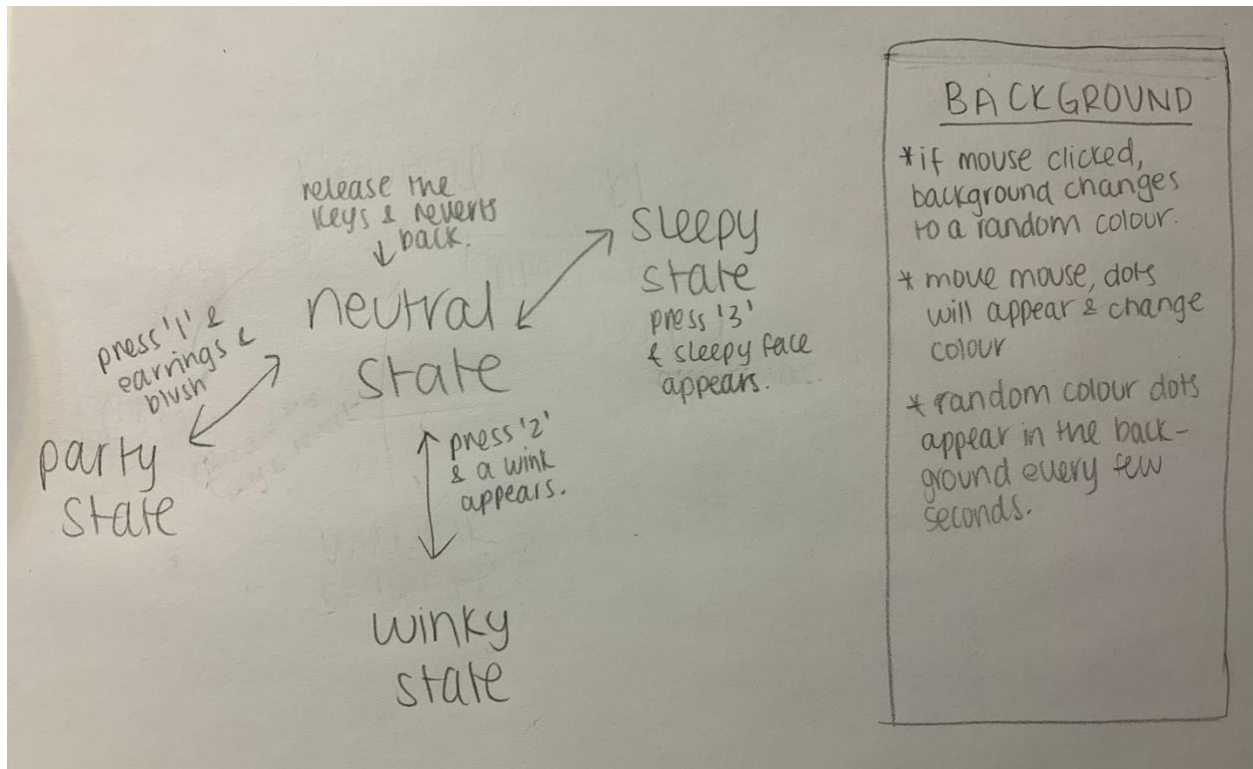 release the
keys & reverts
↓ back.
neutral
state
press '1' &
earrings &
blush
party
state
press '2'
& a wink
appears.
winky
state
sleepy
state
press '3'
& sleepy face
appears.
BACKGROUND
*if mouse clicked,
background changes
to a random colour.
* move mouse, dots
will appear & change
colour
* random colour dots
appear in the back-
ground every few
seconds.